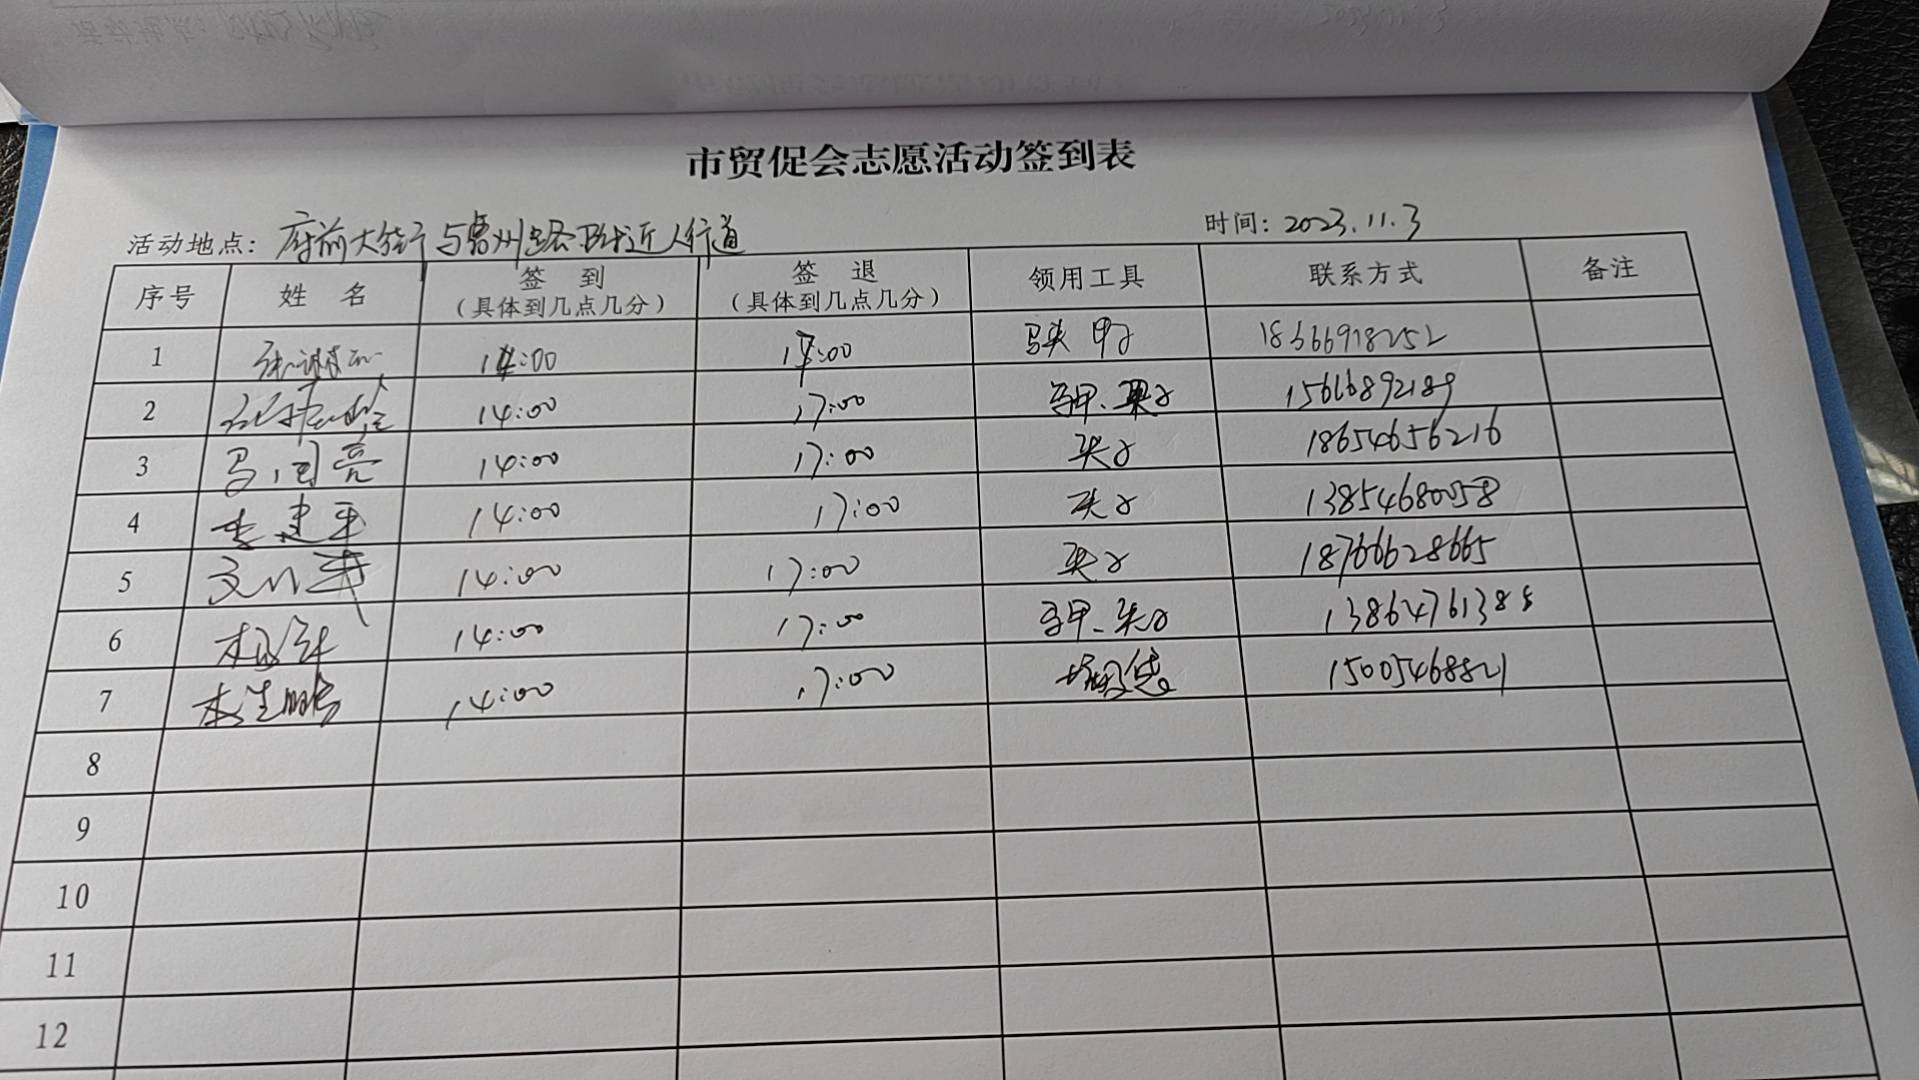 市贸促会志愿活动签到表
活动地点: 府前大街与 州路附近人行道 时间: 2023.11.3
序号 姓 名 签 到 (具体到几点几分) 签 退 (具体到几点几分) 领用工具 联系方式 备注
1 14:00 17:00 18666918252
2 14:00 17:00 马甲、夹子 15616892189
3 马国亮 14:00 17:00 夹子 18654656216
4 李建平 14:00 17:00 夹子 13854680058
5 14:00 17:00 夹子 18766628665
6 14:00 17:00 马甲、夹子 13864761388
7 14:00 17:00 15005468821
8
9
10
11
12